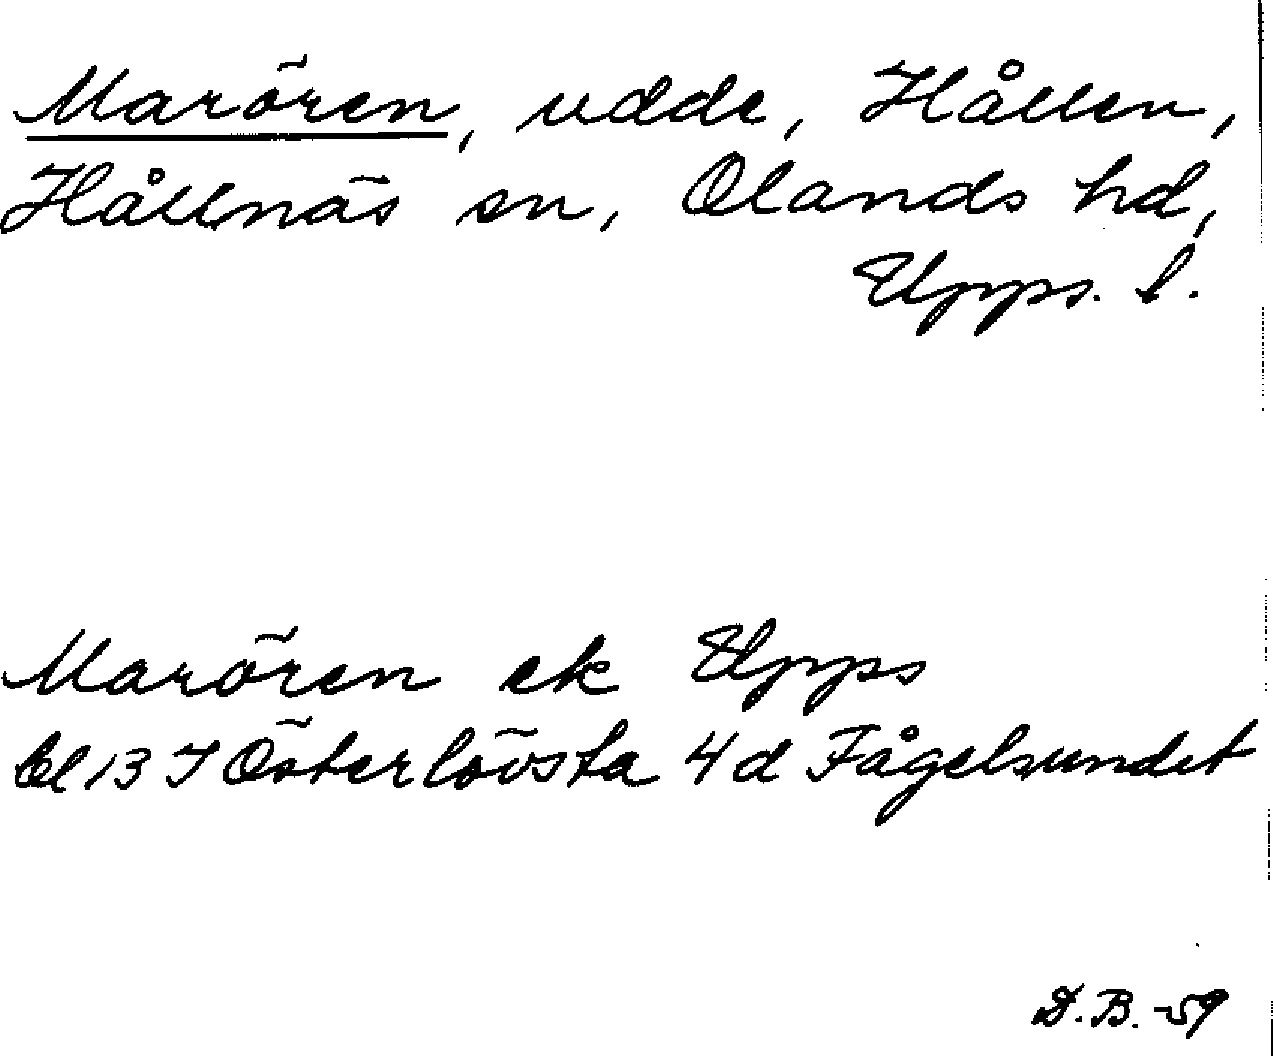 Marören, udde, Hållen,
Hållnäs sn, Olands hd,
Upps. l.
Marören ek Upps
bl 13 I Österlövsta 4 d Fågelsundet
D.B. -59